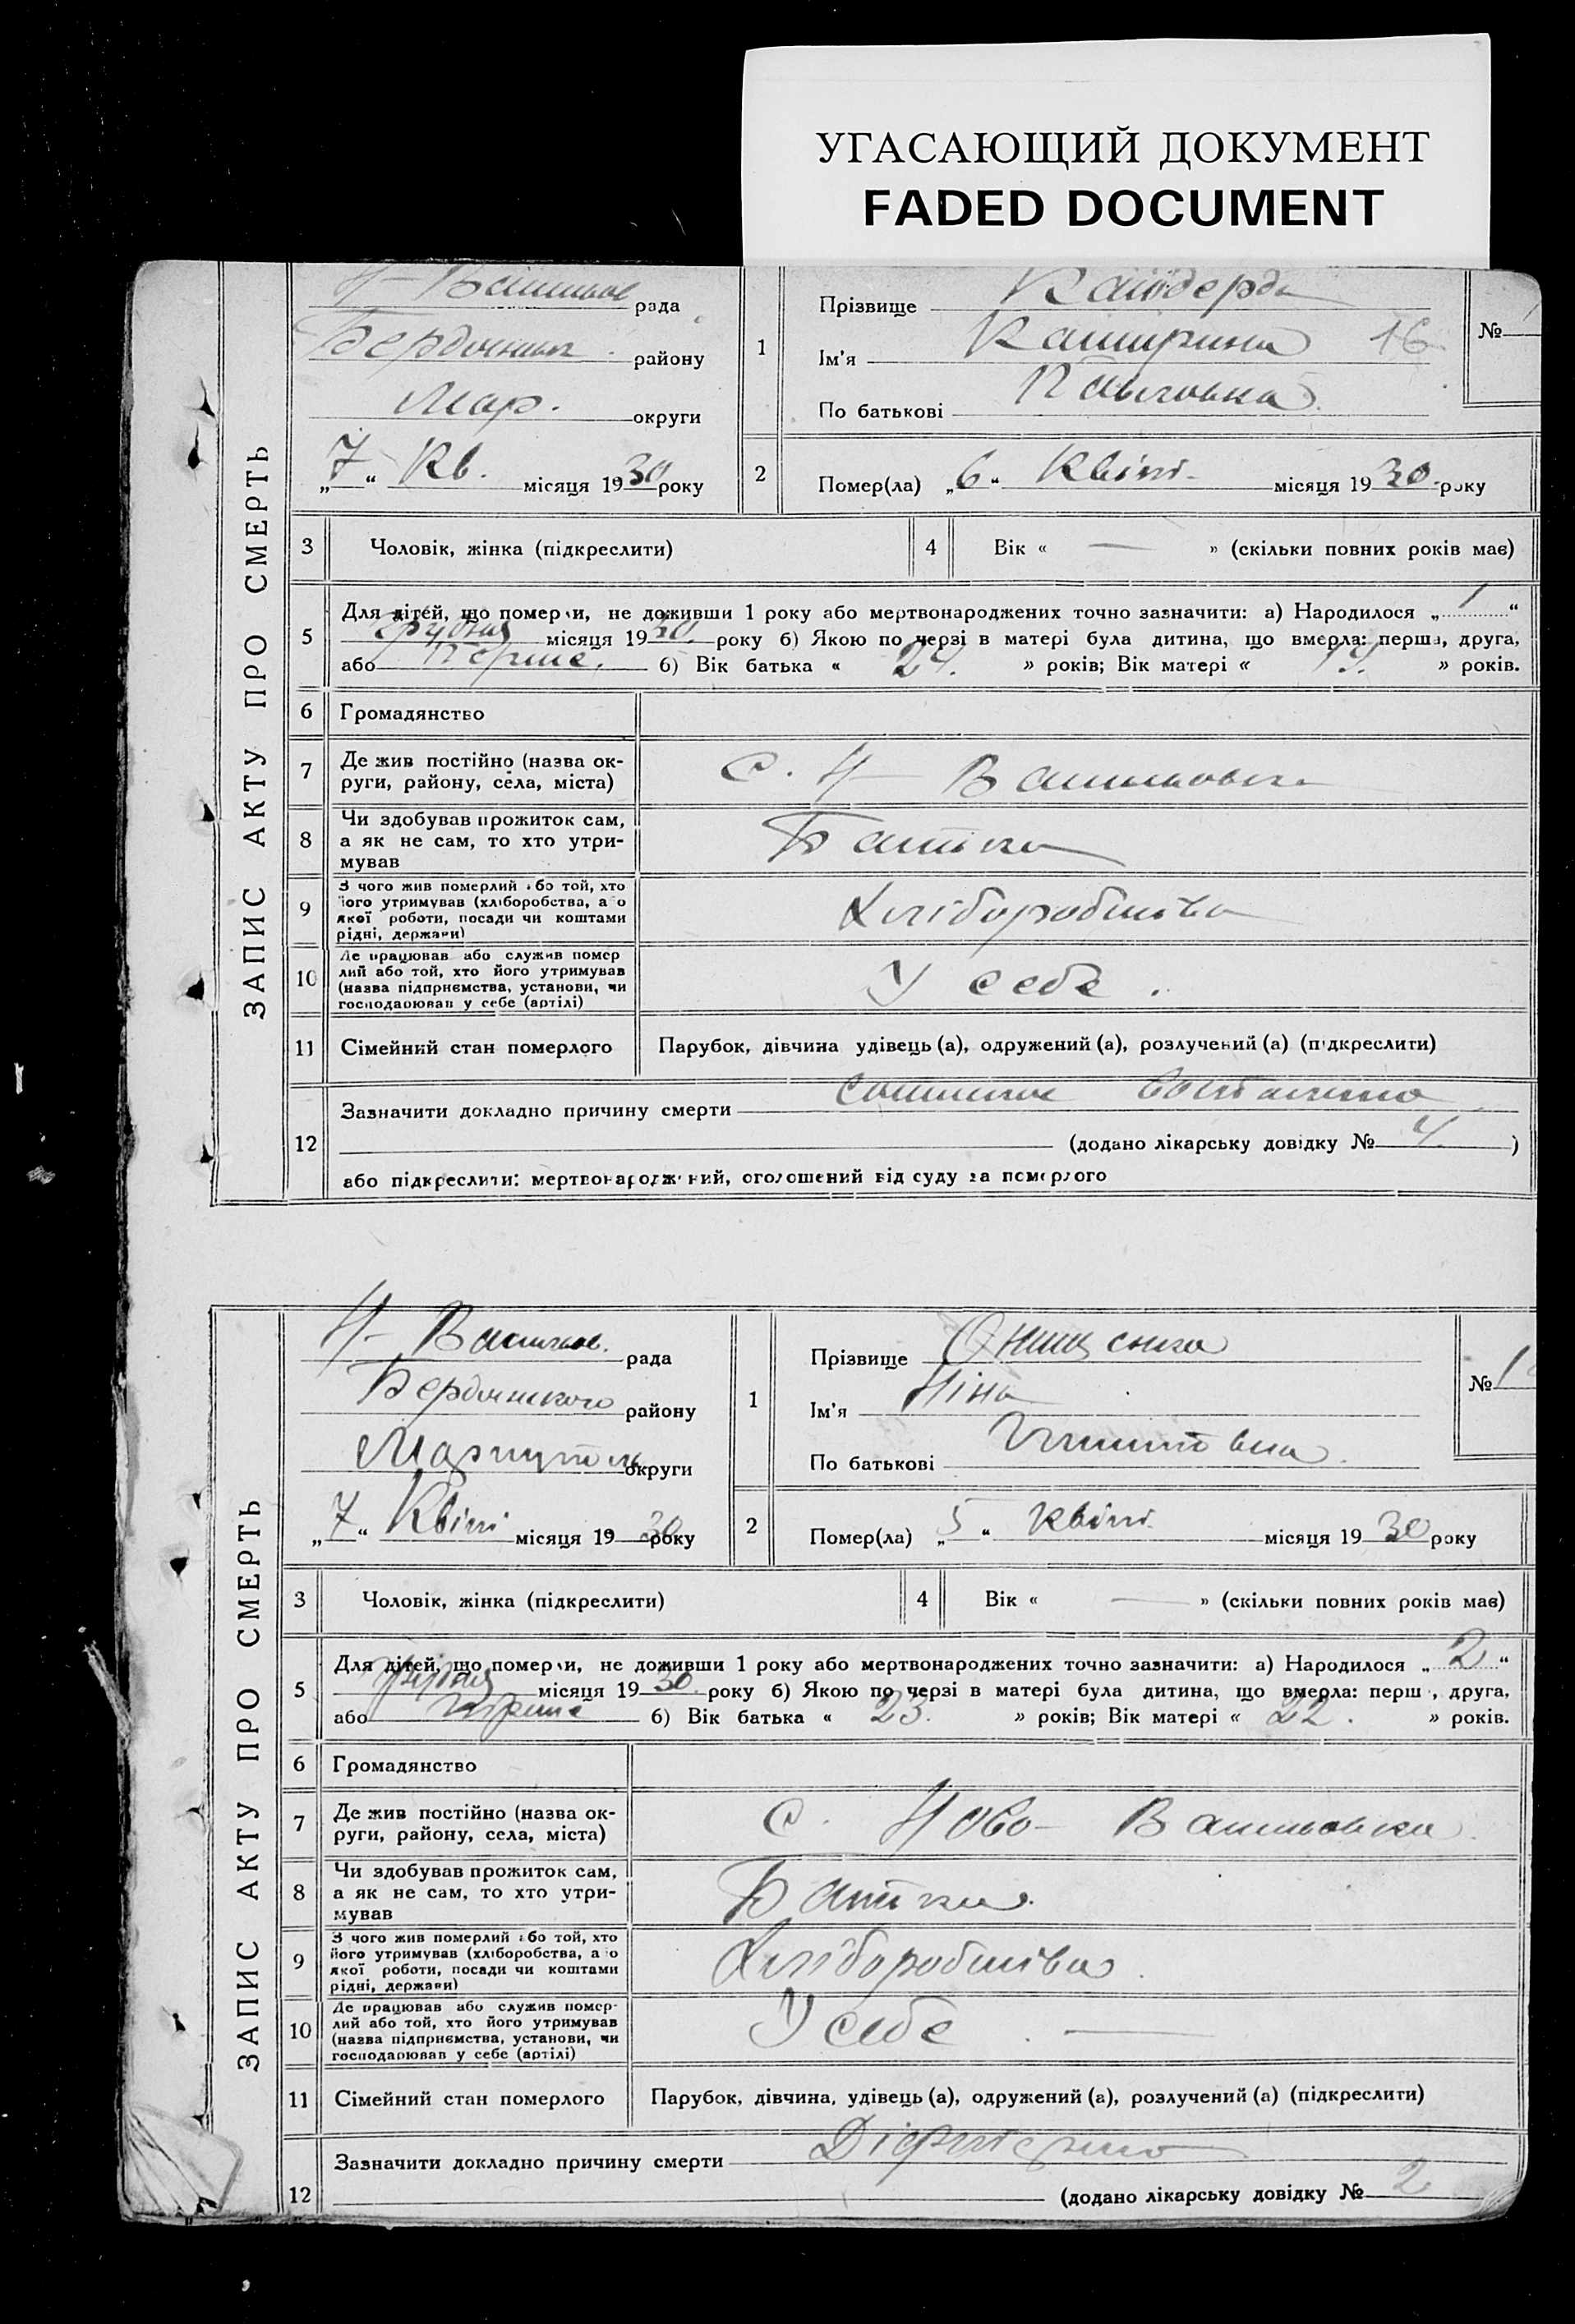 УГАСАЮЩИЙ ДОКУМЕНТ
FADED DOCUMENT
ЗАПИС АКТУ ПРО СМЕРТЬ
рада
району
Мар. округи
„7“ Кв. місяця 1930 року
1
Прізвище
Ім'я 16
По батькові
№
2
Помер(ла) „6“ Квіт. місяця 1930 року
3 Чоловік, жінка (підкреслити)
4 Вік « — » (скільки повних років має)
5
Для дітей, що померли, не доживши 1 року або мертвонароджених точно зазначити: а) Народилося „1“
Грудня місяця 1930. року б) Якою по черзі в матері була дитина, що вмерла: перша, друга,
або перше. б) Вік батька « 24. » років; Вік матері « » років.
6 Громадянство
7
Де жив постійно (назва ок-
руги, району, села, міста)
С. Н-
8
Чи здобував прожиток сам,
а як не сам, то хто утри-
мував
Батька
9
З чого жив померлий або той, хто
його утримував (хліборобства, або
якої роботи, посади чи коштами
рідні, держави)
Хліборобства
10
Де працював або служив помер
лий або той, хто його утримував
(назва підприємства, установи, чи
господарював у себе (артілі)
У себе.
11 Сімейний стан померлого
Парубок, дівчина удівець (а), одружений (а), розлучений (а) (підкреслити)
12
Зазначити докладно причину смерти
(додано лікарську довідку № 4)
або підкреслити: мертвонароджений, оголошений від суду за померлого
ЗАПИС АКТУ ПРО СМЕРТЬ
рада
Бердянського району
Маріупол округи
„7“ Квіт місяця 1930 року
1
Прізвище
Ім'я Ніна
По батькові
№ 1
2
Помер(ла) „5“ Квіт. місяця 1930 року
3 Чоловік, жінка (підкреслити)
4 Вік « — » (скільки повних років має)
5
Для дітей, що померли, не доживши 1 року або мертвонароджених точно зазначити: а) Народилося „2“
Грудня місяця 1930. року б) Якою по черзі в матері була дитина, що вмерла: перш, друга,
або перше б) Вік батька « 23. » років; Вік матері « 22. » років.
6 Громадянство
7
Де жив постійно (назва ок-
руги, району, села, міста)
С. Ново-
8
Чи здобував прожиток сам,
а як не сам, то хто утри-
мував
Батька.
9
З чого жив померлий або той, хто
його утримував (хліборобства, або
якої роботи, посади чи коштами
рідні, держави)
Хліборобства.
10
Де працював або служив помер-
лий або той, хто його утримував
(назва підприємства, установи, чи
господарював у себе (артілі)
У себе. —
11 Сімейний стан померлого
Парубок, дівчина, удівець (а), одружений (а), розлучений (а) (підкреслити)
12
Зазначити докладно причину смерти
(додано лікарську довідку № 2